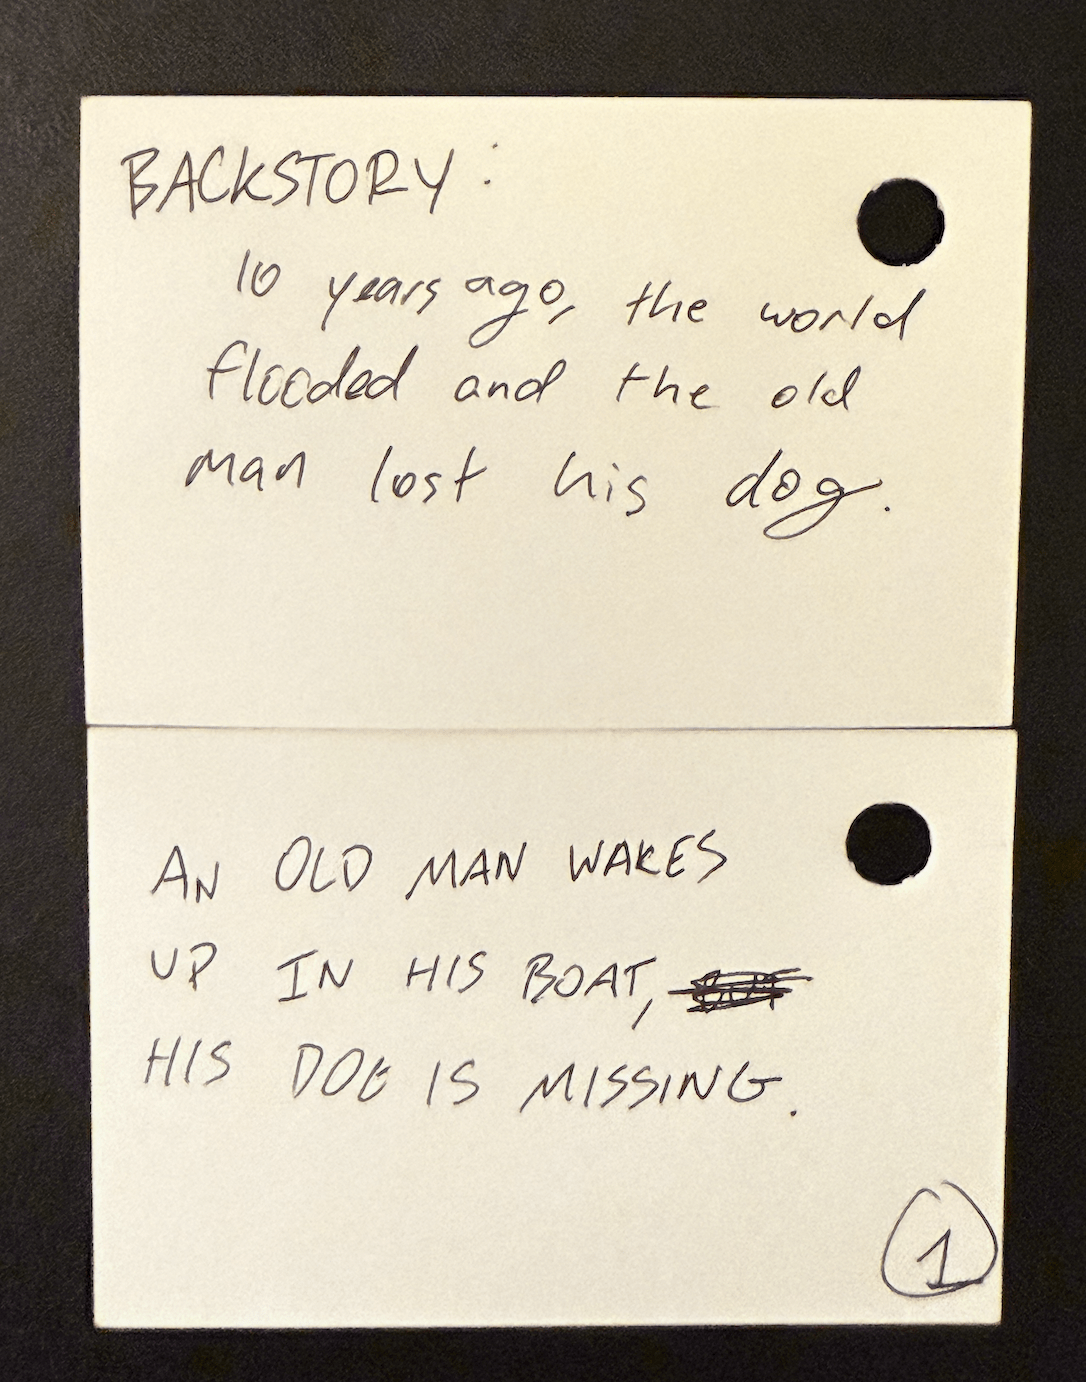 BACKSTORY:
10 years ago, the world
flooded and the old
man lost his dog.
AN OLD MAN WAKES
UP IN HIS BOAT,
HIS DOG IS MISSING.
1